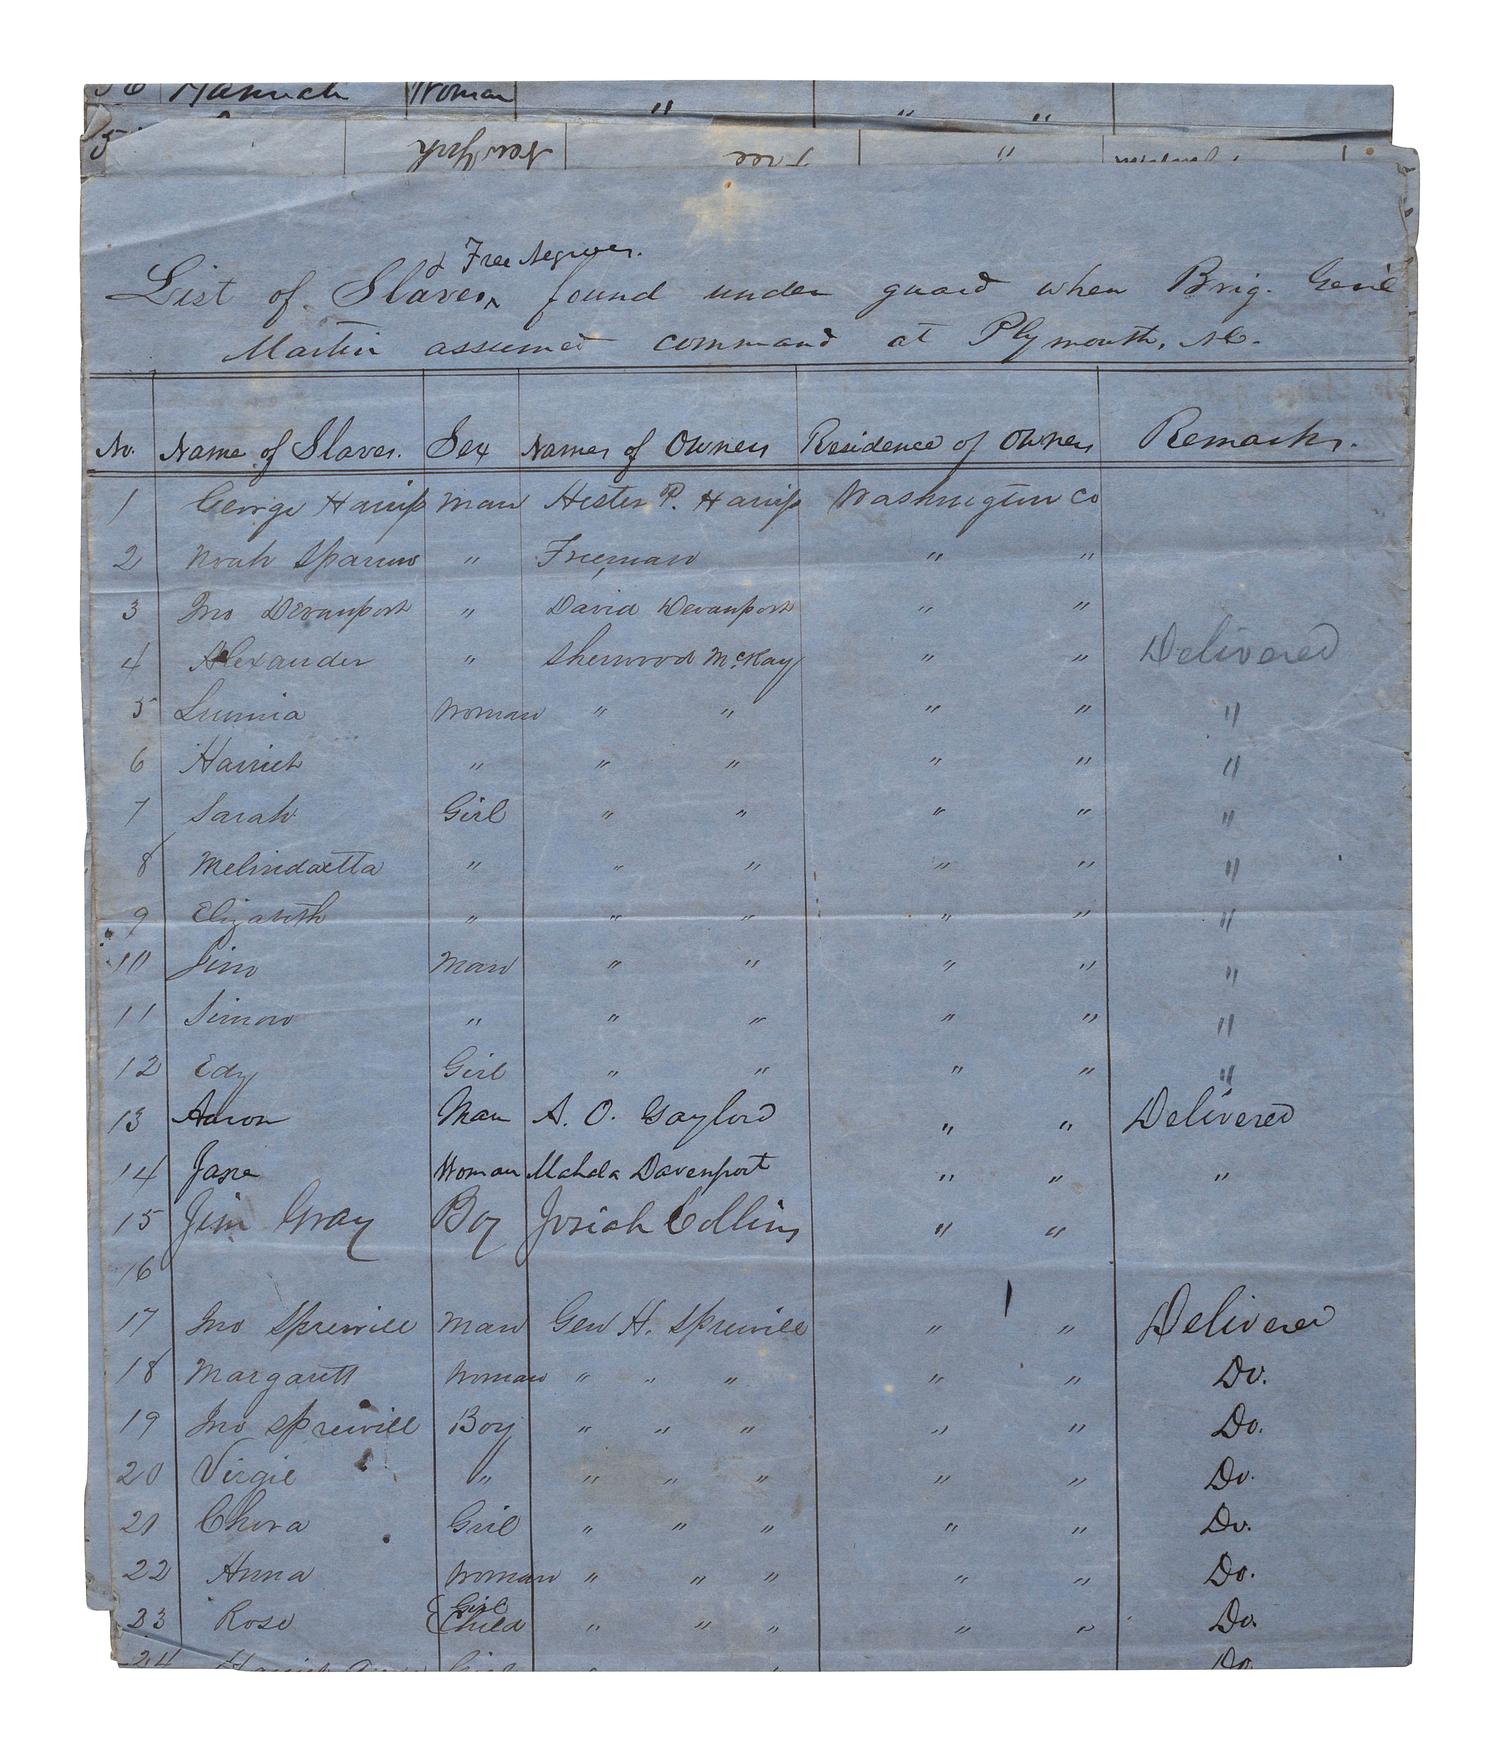 Hannah Woman " " "
New York Free "
& Free Negroes.
List of Slaves ^ found under guard when Brig. Genl
Martin assumed command at Plymouth, NC.
No. Name of Slaves. Sex Names of Owners Residence of Owners Remarks.
1 George Man Hester P. Washington Co
2 Noah Sparrow " Freeman " "
3 Jno Devanport " David Devanport " "
4 Alexander " Sherwood McKay " " Delivered
5 Woman " " " " "
6 Harriet " " " " " "
7 Sarah Girl " " " " "
8 Melindaetta " " " " " "
9 Elizabeth " " " " " "
10 Jim Man " " " " "
11 Simon " " " " " "
12 Edy Girl " " " " "
13 Aaron Man A. O. Gaylord " " Delivered
14 Jane Woman Davenport " " "
15 Jim Gray Boy Josiah Collins " "
16
17 Jno Sprewill Man H. Sprewill " " Delivered
18 Margarett Woman " " " " " Do.
19 Jno Sprewill Boy " " " " " Do.
20 Virgil " " " " " " Do.
21 Girl " " " " " Do.
22 Anna Woman " " " " " Do.
23 Rose Girl Child " " " " " Do.
24 Girl Do.